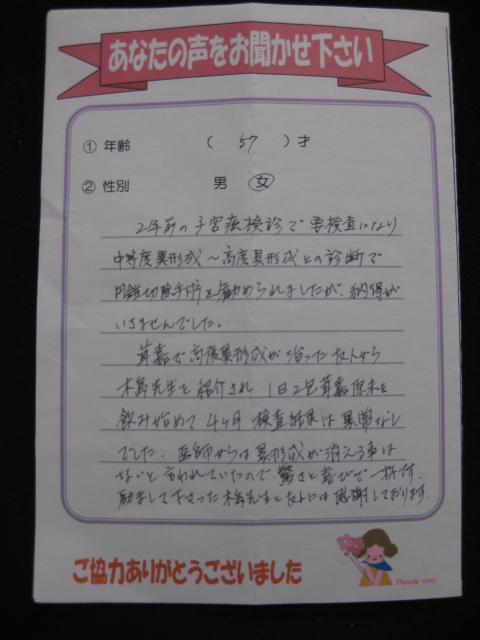 あなたの声をお聞かせ下さい
① 年齢 ( 57 )才
② 性別 男 女
2年前の子宮癌検診で要検査になり
中等度異形成〜高度異形成との診断で
円錐切除手術を勧められましたが、納得が
いきませんでした。
茸嘉で高度異形成が治った友人から
木島先生を紹介され 1日2包茸嘉原末を
飲み始めて4ヶ月 検査結果は異常なし
でした。医師からは異形成が消える事は
ないと言われていたので、驚きと喜びで一杯です。
励まして下さった木島先生と友人には感謝しております。
ご協力ありがとうございました
Thank you